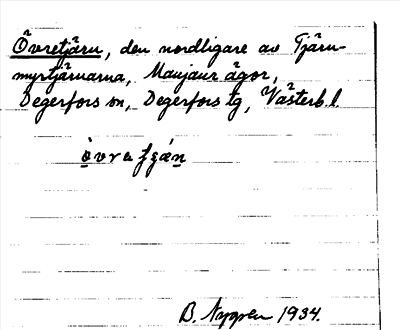 Övretjärn, den nordligare av Tjärn-
myrtjärnarna, Maujaur ägor,
Degerfors sn, Degerfors tg, Västerb. l.
B. Nygren 1934.